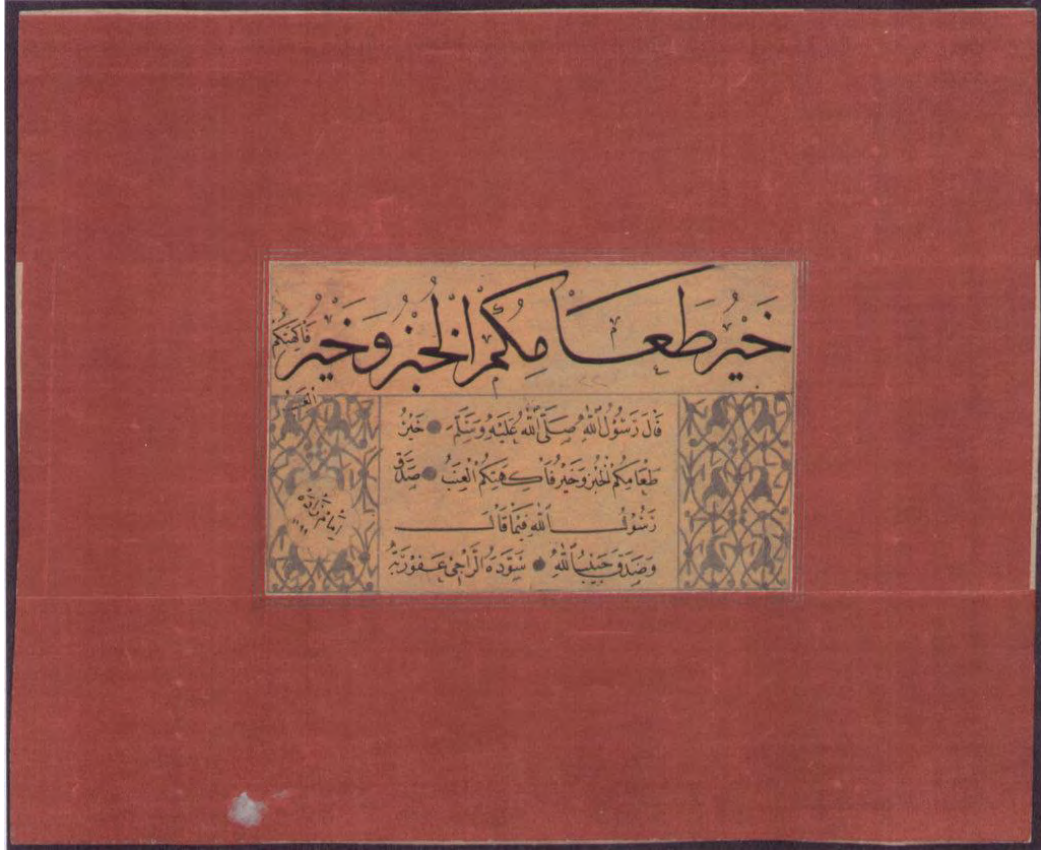 خَيْرُ طَعَامِكُمْ الْخُبْزُ وَخَيْرُ فَاكِهَتِكُمْ
الْعِنَبُ
قَالَ رَسُولُ اللهِ صَلَّى اللهُ عَلَيْهِ وَسَلَّمَ خَيْرُ
طَعَامِكُمُ الْخُبْزُ وَخَيْرُ فَاكِهَتِكُمُ الْعِنَبُ صَدَقَ
رَسُولُ اللهِ فِيمَا قَالَ
وَصَدَقَ حَبِيبُ اللهِ سَوَّدَهُ الرَّاجِى عَفْوَ رَبِّهِ
امام زاده